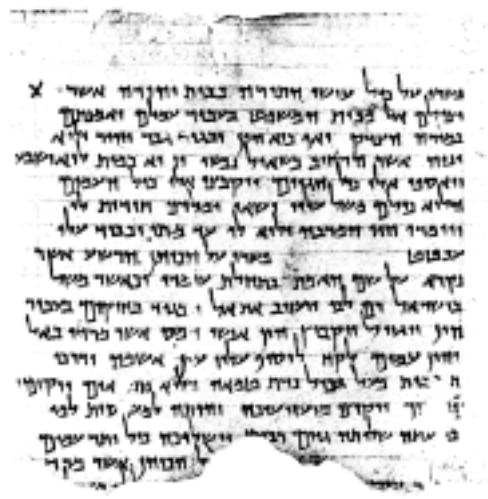 פשרו על כול עושי התורה בבית יהודה אשר
יצילם אל מבית המשפט בעבור עמלם ואמנתם
במורה הצדק ואף כיא הון יבגוד גבר יהיר ולוא
ינוה אשר הרחיב כשאול נפשו והוא כמות לוא ישבע
ויאספו אלו כול הגוים ויקבצו אלו כול העמים
הלוא כולם משל עליו ישאו ומליצי חידות לו
ויומרו הוי המרבה ולוא לו עד מתי יכביד עלו
עבטט פשרו על הכוהן הרשע אשר
נקרא על שם האמת בתחלת עומדו וכאשר משל
בישראל רם לבו ויעזוב את אל ויבגוד בחוקים בעבור
הון ויגזול ויקבוץ הון אנשי חמס אשר מרדו באל
והון עמים לקח לוסיף עליו עון אשמה ודרכי
פעל בכול נדת טמאה הלוא ויקומו
ויקיצו מזעזיעיכה והיית למשיסות למו
כי אתה שלותה גוים וישלוכה כול יתר עמים
הכוהן אשר מרד